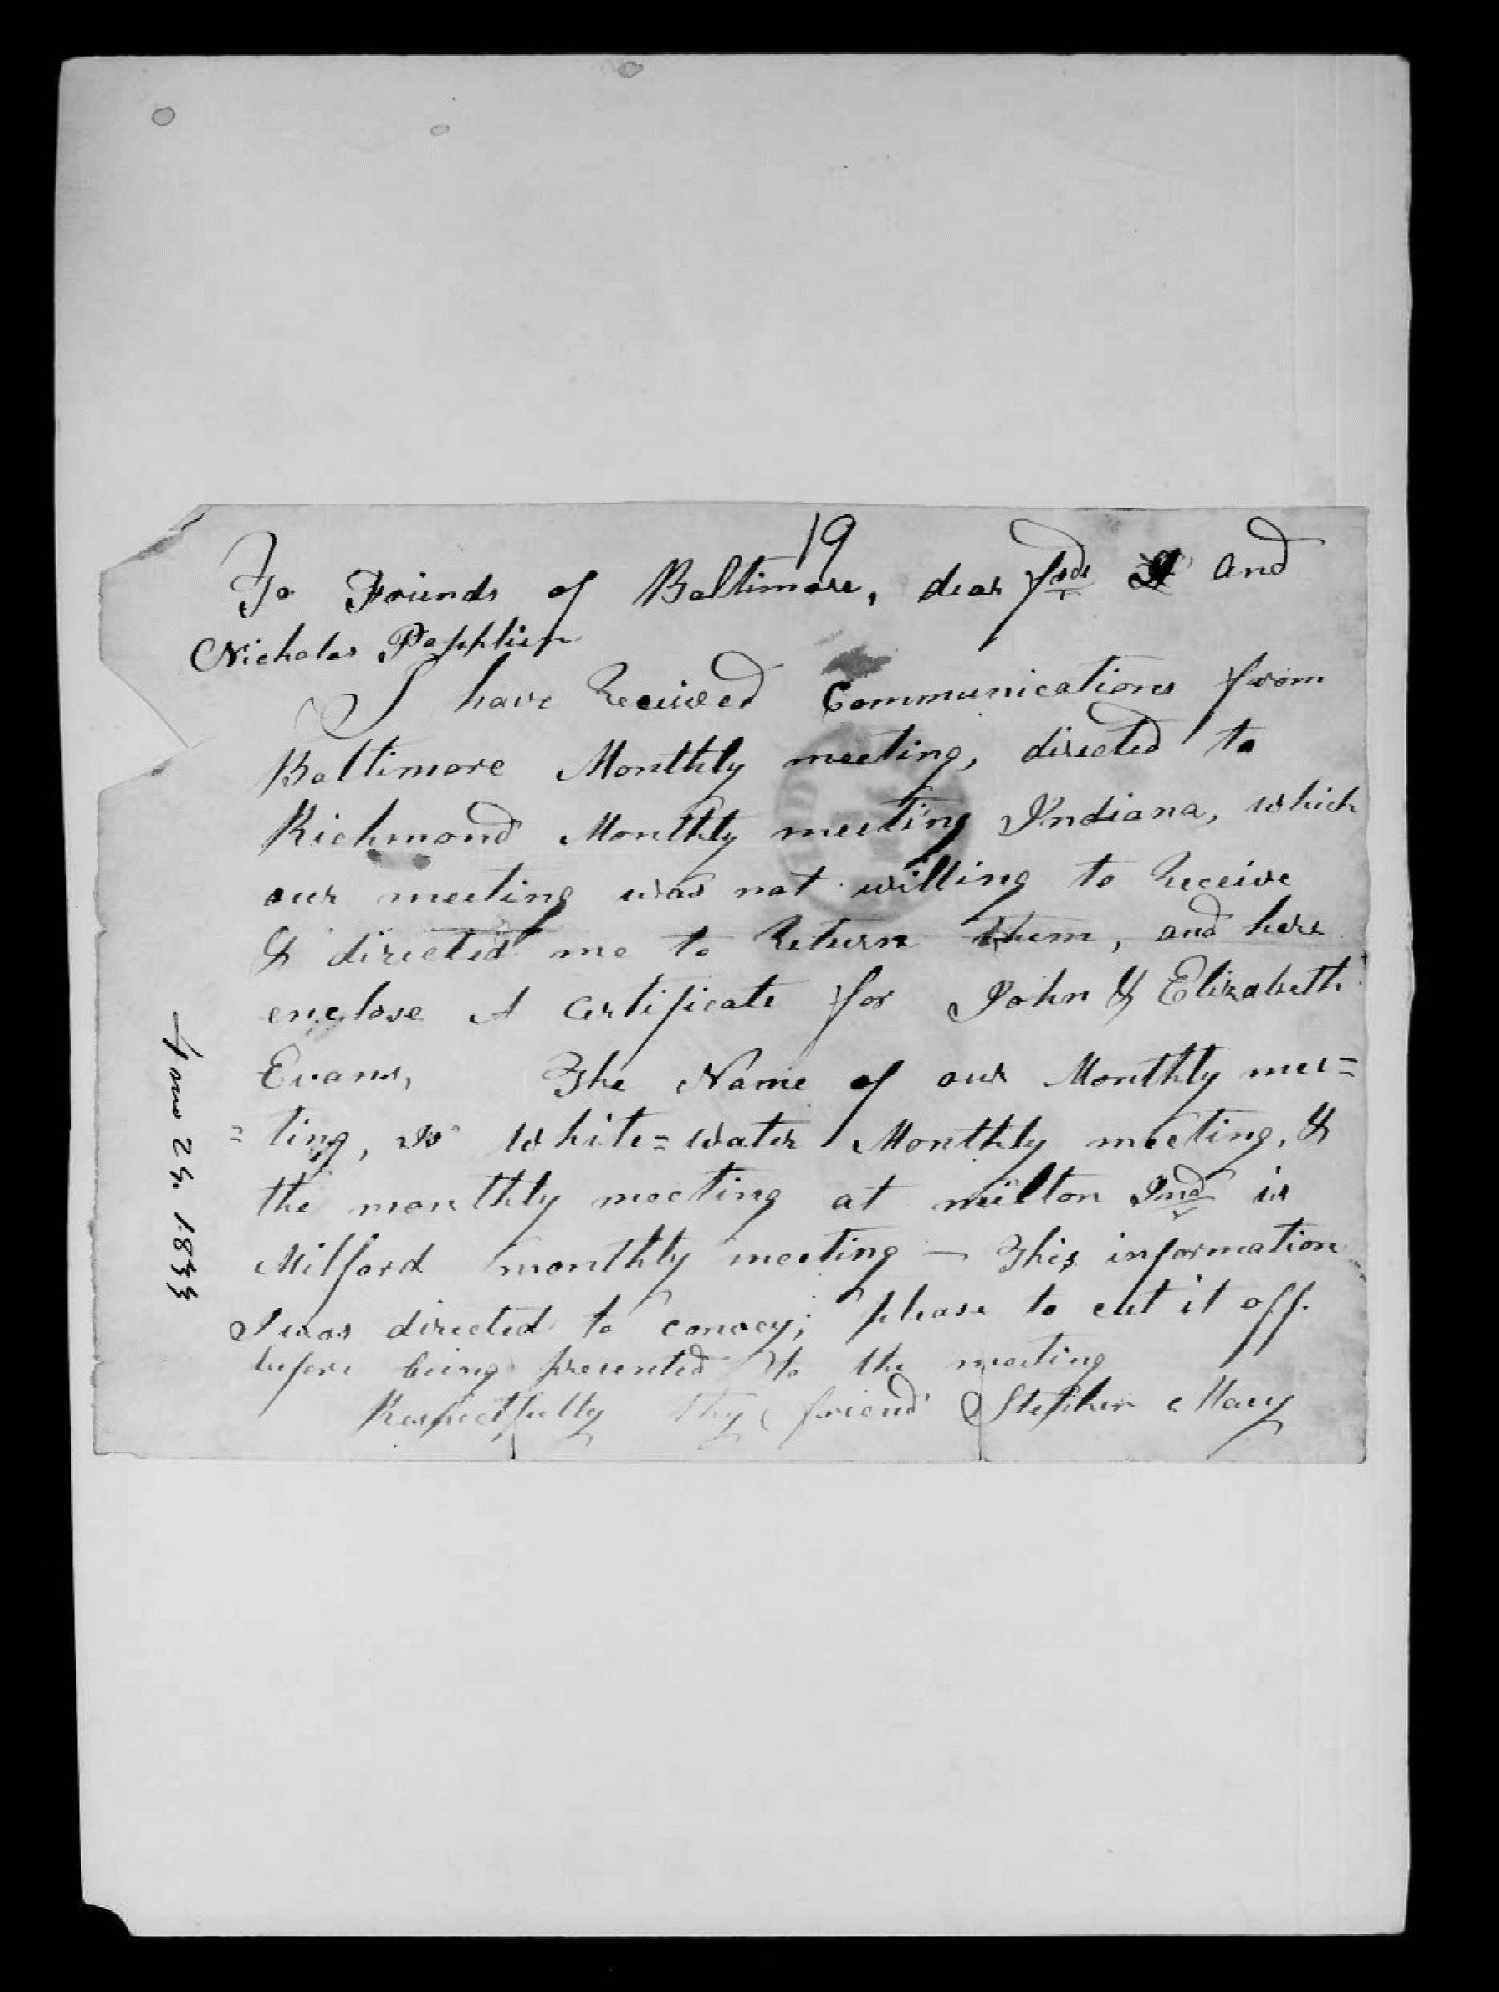 19
To Friends of Baltimore, dear frds and
Nicholas Popplein
I have Received Communications from
Baltimore Monthly meeting, directed to
Richmond Monthly meeting Indiana, which
our meeting was not willing to Receive
& directed me to Return them, and here
enclose A Certificate for John & Elizabeth
Evans, The Name of our Monthly mee=
=ting, is White=water Monthly meeting, &
the monthly meeting at milton Ind is
Milford monthly meeting — This information
I was directed to convey; please to cut it off.
before being presented to the meeting
Respectfully thy friend Stephen Macy